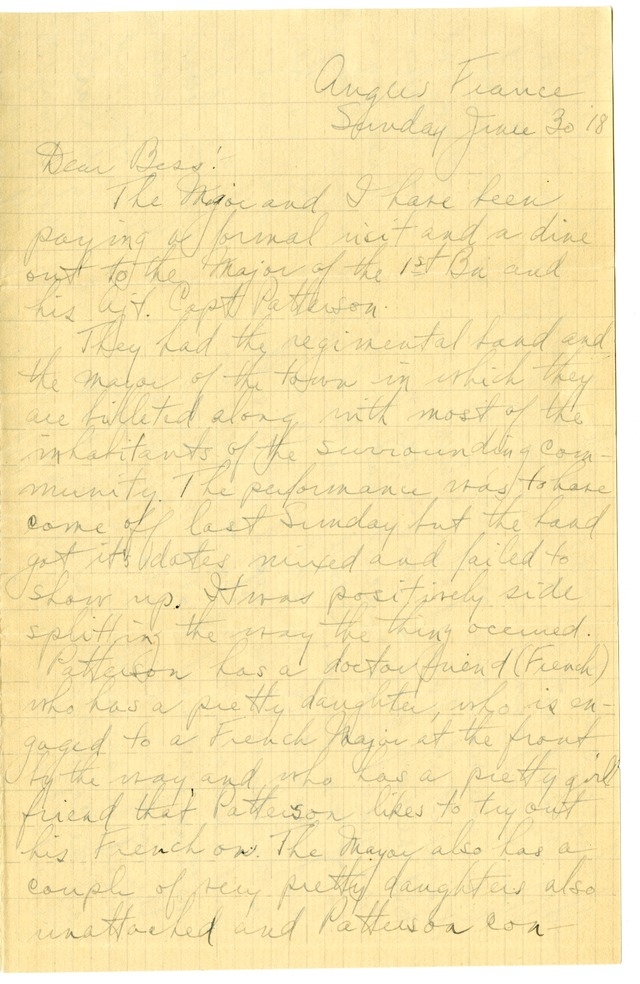 Angers France
Sunday June 30 '18
Dear Bess:
The Major and I have been
paying a formal visit and a dine
out to the Major of the 1st Bn and
his Ajt. Capt Patterson.
They had the regimental band and
the mayor of the town in which they
are billeted along with most of the
inhabitants of the surrounding com-
munity. The performance was to have
come off last Sunday but the band
got it's dates mixed and failed to
show up. It was positively side
splitting the way the thing occured.
Patterson has a doctor friend (French)
who has a pretty daughter, who is en-
gaged to a French Major at the front
by the way and who has a pretty girl
friend that Patterson likes to try out
his French on. The Mayor also has a
couple of very pretty daughters also
unattached and Patterson con-